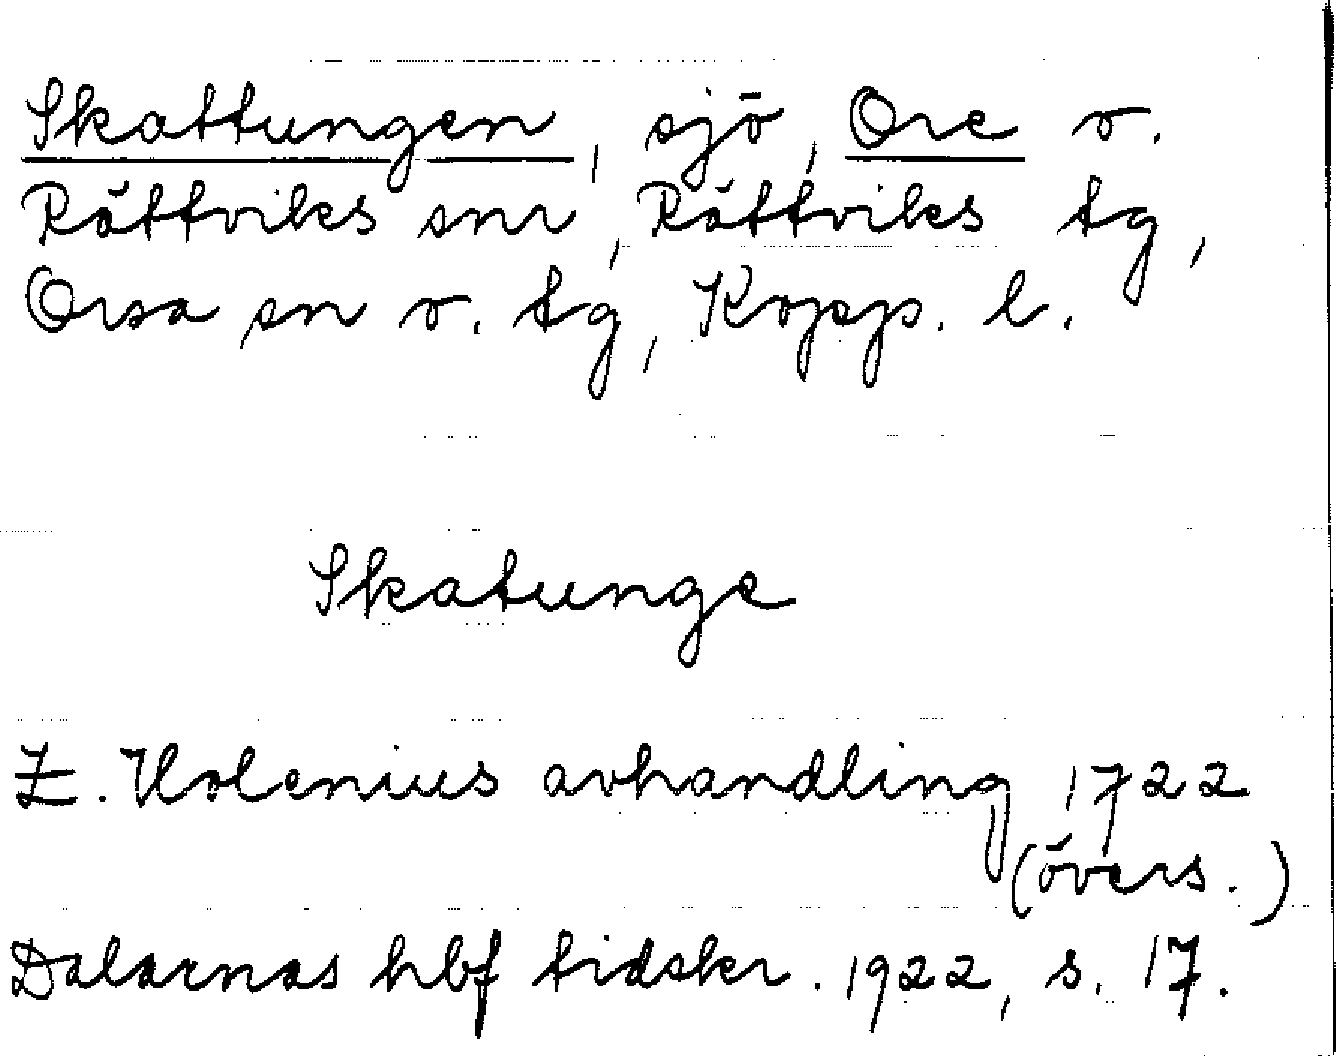 Skattungen, sjö, Ore o.
Rättviks snr, Rättviks tg,
Orsa sn o. tg, Kopp. l.
Skatunge
Z. Holenius avhandling 1722
(övers.)
Dalarnas hbf tidskr. 1922, s. 17.